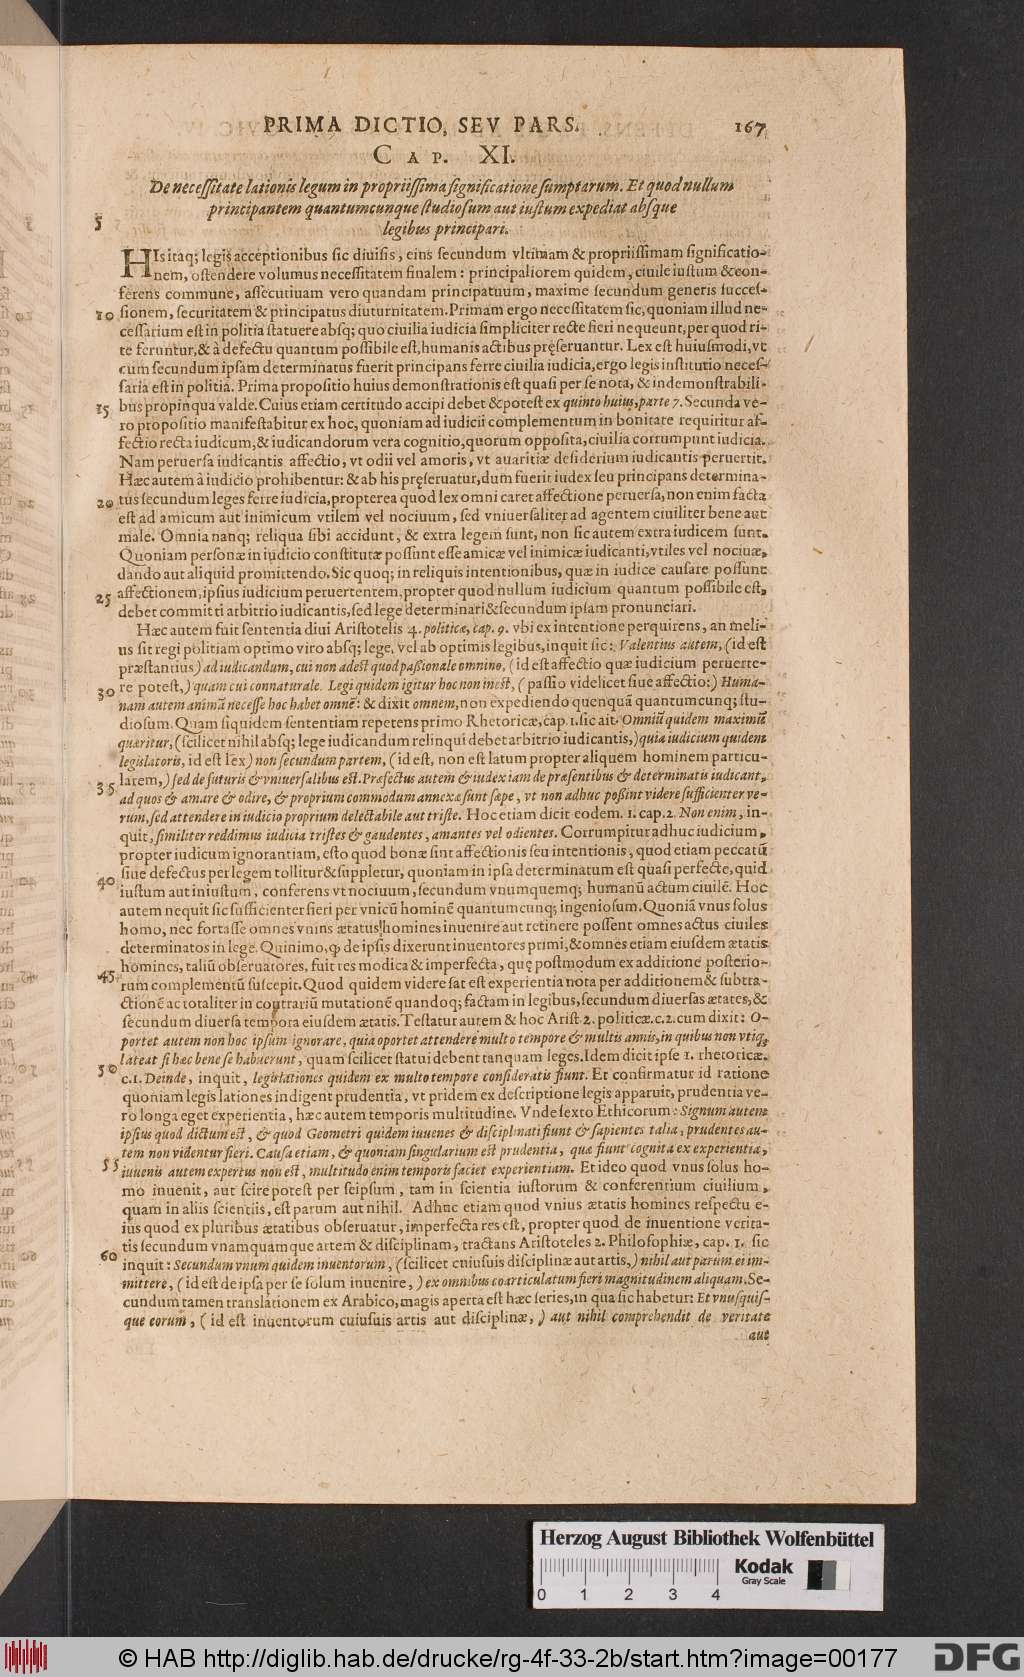 PRIMA DICTIO, SEV PARS. 167
CAP. XI.
De necessitate lationis legum in propriissima significatione sumptarum. Et quod nullum
principantem quantumcunque studiosum aut iustum expediat absque
5
legibus principari.
HIs itaq; legis acceptionibus sic diuisis, eius secundum vltimam & propriissimam significatio-
nem, ostendere volumus necessitatem finalem: principaliorem quidem, ciuile iustum & con-
ferens commune, assecutiuam vero quandam principatuum, maxime secundum generis succes-
10 sionem, securitatem & principatus diuturnitatem. Primam ergo necessitatem sic, quoniam illud ne-
cessarium est in politia statuere absq; quo ciuilia iudicia simpliciter recte fieri nequeunt, per quod ri-
te feruntur, & à defectu quantum possibile est, humanis actibus pręseruantur. Lex est huiusmodi, vt
cum secundum ipsam determinatus fuerit principans ferre ciuilia iudicia, ergo legis institutio neces-
saria est in politia. Prima propositio huius demonstrationis est quasi per se nota, & indemonstrabili-
15 bus propinqua valde. Cuius etiam certitudo accipi debet & potest ex quinto huius, parte 7. Secunda ve-
ro propositio manifestabitur ex hoc, quoniam ad iudicii complementum in bonitate requiritur af-
fectio recta iudicum, & iudicandorum vera cognitio, quorum opposita, ciuilia corrumpunt iudicia.
Nam peruersa iudicantis affectio, vt odii vel amoris, vt auaritiæ desiderium iudicantis peruertit.
Hæc autem à iudicio prohibentur: & ab his pręseruatur, dum fuerit iudex seu principans determina-
20 tus secundum leges ferre iudicia, propterea quod lex omni caret affectione peruersa, non enim facta
est ad amicum aut inimicum vtilem vel nociuum, sed vniuersaliter ad agentem ciuiliter bene aut
male. Omnia nanq; reliqua sibi accidunt, & extra legem sunt, non sic autem extra iudicem sunt.
Quoniam personæ in iudicio constitutæ possunt esse amicæ vel inimicæ iudicanti, vtiles vel nociuæ,
dando aut aliquid promittendo. Sic quoq; in reliquis intentionibus, quæ in iudice causare possunt
25 affectionem, ipsius iudicium peruertentem, propter quod nullum iudicium quantum possibile est,
debet committi arbitrio iudicantis, sed lege determinari & secundum ipsam pronunciari.
Hæc autem fuit sententia diui Aristotelis 4. politicæ, cap. 9. vbi ex intentione perquirens, an meli-
us sit regi politiam optimo viro absq; lege, vel ab optimis legibus, inquit sic: Valentius autem, (id est
præstantius) ad iudicandum, cui non adest quod passionale omnino, (id est affectio quæ iudicium peruerte-
30 re potest,) quam cui connaturale. Legi quidem igitur hoc non inest, (passio videlicet siue affectio:) Huma-
nam autem animã necesse hoc habet omnẽ: & dixit omnem, non expediendo quenquã quantumcunq; stu-
diosum. Quam siquidem sententiam repetens primo Rhetoricæ, cap. 1. sic ait. Omniũ quidem maximũ
quæritur, (scilicet nihil absq; lege iudicandum relinqui debet arbitrio iudicantis,) quia iudicium quidem
legislatoris, id est lex) non secundum partem, (id est, non est latum propter aliquem hominem particu-
35 larem,) sed de futuris & vniuersalibus est. Præfectus autem & iudex iam de præsentibus & determinatis iudicant,
ad quos & amare & odire, & proprium commodum annexa sunt sæpe, vt non adhuc possint videre sufficienter ve-
rum, sed attendere in iudicio proprium delectabile aut triste. Hoc etiam dicit eodem. 1. cap. 2. Non enim, in-
quit, similiter reddimus iudicia tristes & gaudentes, amantes vel odientes. Corrumpitur adhuc iudicium,
propter iudicum ignorantiam, esto quod bonæ sint affectionis seu intentionis, quod etiam peccatũ
40 siue defectus per legem tollitur & suppletur, quoniam in ipsa determinatum est quasi perfecte, quid
iustum aut iniustum, conferens vt nociuum, secundum vnumquemq; humanũ actum ciuilẽ. Hoc
autem nequit sic sufficienter fieri per vnicũ hominẽ quantumcunq; ingeniosum. Quoniã vnus solus
homo, nec fortasse omnes vnius ætatus homines inuenire aut retinere possent omnes actus ciuiles
determinatos in lege. Quinimo, q, de ipsis dixerunt inuentores primi, & omnes etiam eiusdem ætatis
45 homines, taliũ obseruatores, fuit res modica & imperfecta, quę postmodum ex additione posterio-
rum complementũ suscepit. Quod quidem videre sat est experientia nota per additionem & subtra-
ctionẽ ac totaliter in contrariũ mutationẽ quandoq; factam in legibus, secundum diuersas ætates, &
secundum diuersa tempora eiusdem ætatis. Testatur autem & hoc Arist. 2. politicæ. c. 2. cum dixit: O-
portet autem non hoc ipsum ignorare, quia oportet attendere multo tempore & multis annis, in quibus non vtiq,
50 lateat si hæc bene se habuerunt, quam scilicet statui debent tanquam leges. Idem dicit ipse 1. rhetoricæ.
c. 1. Deinde, inquit, legislationes quidem ex multo tempore consideratis fiunt. Et confirmatur id ratione
quoniam legis lationes indigent prudentia, vt pridem ex descriptione legis apparuit, prudentia ve-
ro longa eget experientia, hæc autem temporis multitudine. Vnde sexto Ethicorum: Signum autem
ipsius quod dictum est, & quod Geometri quidem iuuenes & disciplinati fiunt & sapientes talia, prudentes au-
tem non videntur fieri. Causa etiam, & quoniam singularium est prudentia, quæ fiunt cognita ex experientia,
55 iuuenis autem expertus non est, multitudo enim temporis faciet experientiam. Et ideo quod vnus solus ho-
mo inuenit, aut scire potest per seipsum, tam in scientia iustorum & conferentium ciuilium,
quam in aliis scientiis, est parum aut nihil. Adhuc etiam quod vnius ætatis homines respectu e-
ius quod ex pluribus ætatibus obseruatur, imperfecta res est, propter quod de inuentione verita-
tis secundum vnamquamque artem & disciplinam, tractans Aristoteles 2. Philosophiæ, cap. 1. sic
60 inquit: Secundum vnum quidem inuentorum, (scilicet cuiusuis disciplinæ aut artis,) nihil aut parum ei im-
mittere, (id est de ipsa per se solum inuenire,) ex omnibus coarticulatum fieri magnitudinem aliquam. Se-
cundum tamen translationem ex Arabico, magis aperta est hæc series, in qua sic habetur: Et vnusquis-
que eorum, (id est inuentorum cuiusuis artis aut disciplinæ,) aut nihil comprehendit de veritate
aut
Herzog August Bibliothek Wolfenbüttel
Kodak
Gray Scale
0 1 2 3 4
© HAB http://diglib.hab.de/drucke/rg-4f-33-2b/start.htm?image=00177
DFG